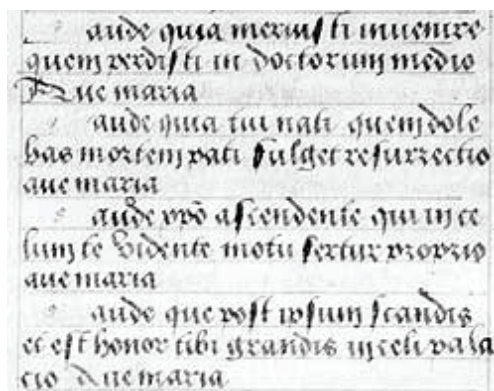 aude quia meruisti invenire
quem perdisti in doctorum medio
Ave maria
aude quia tui nati quem dole
bas mortem pati fulget resurrectio
ave maria
aude xpõ ascendente qui in ce
lum te vidente motu fertur proprio
ave maria
aude que post ipsum scandis
et est honor tibi grandis in celi pala
cio Ave maria